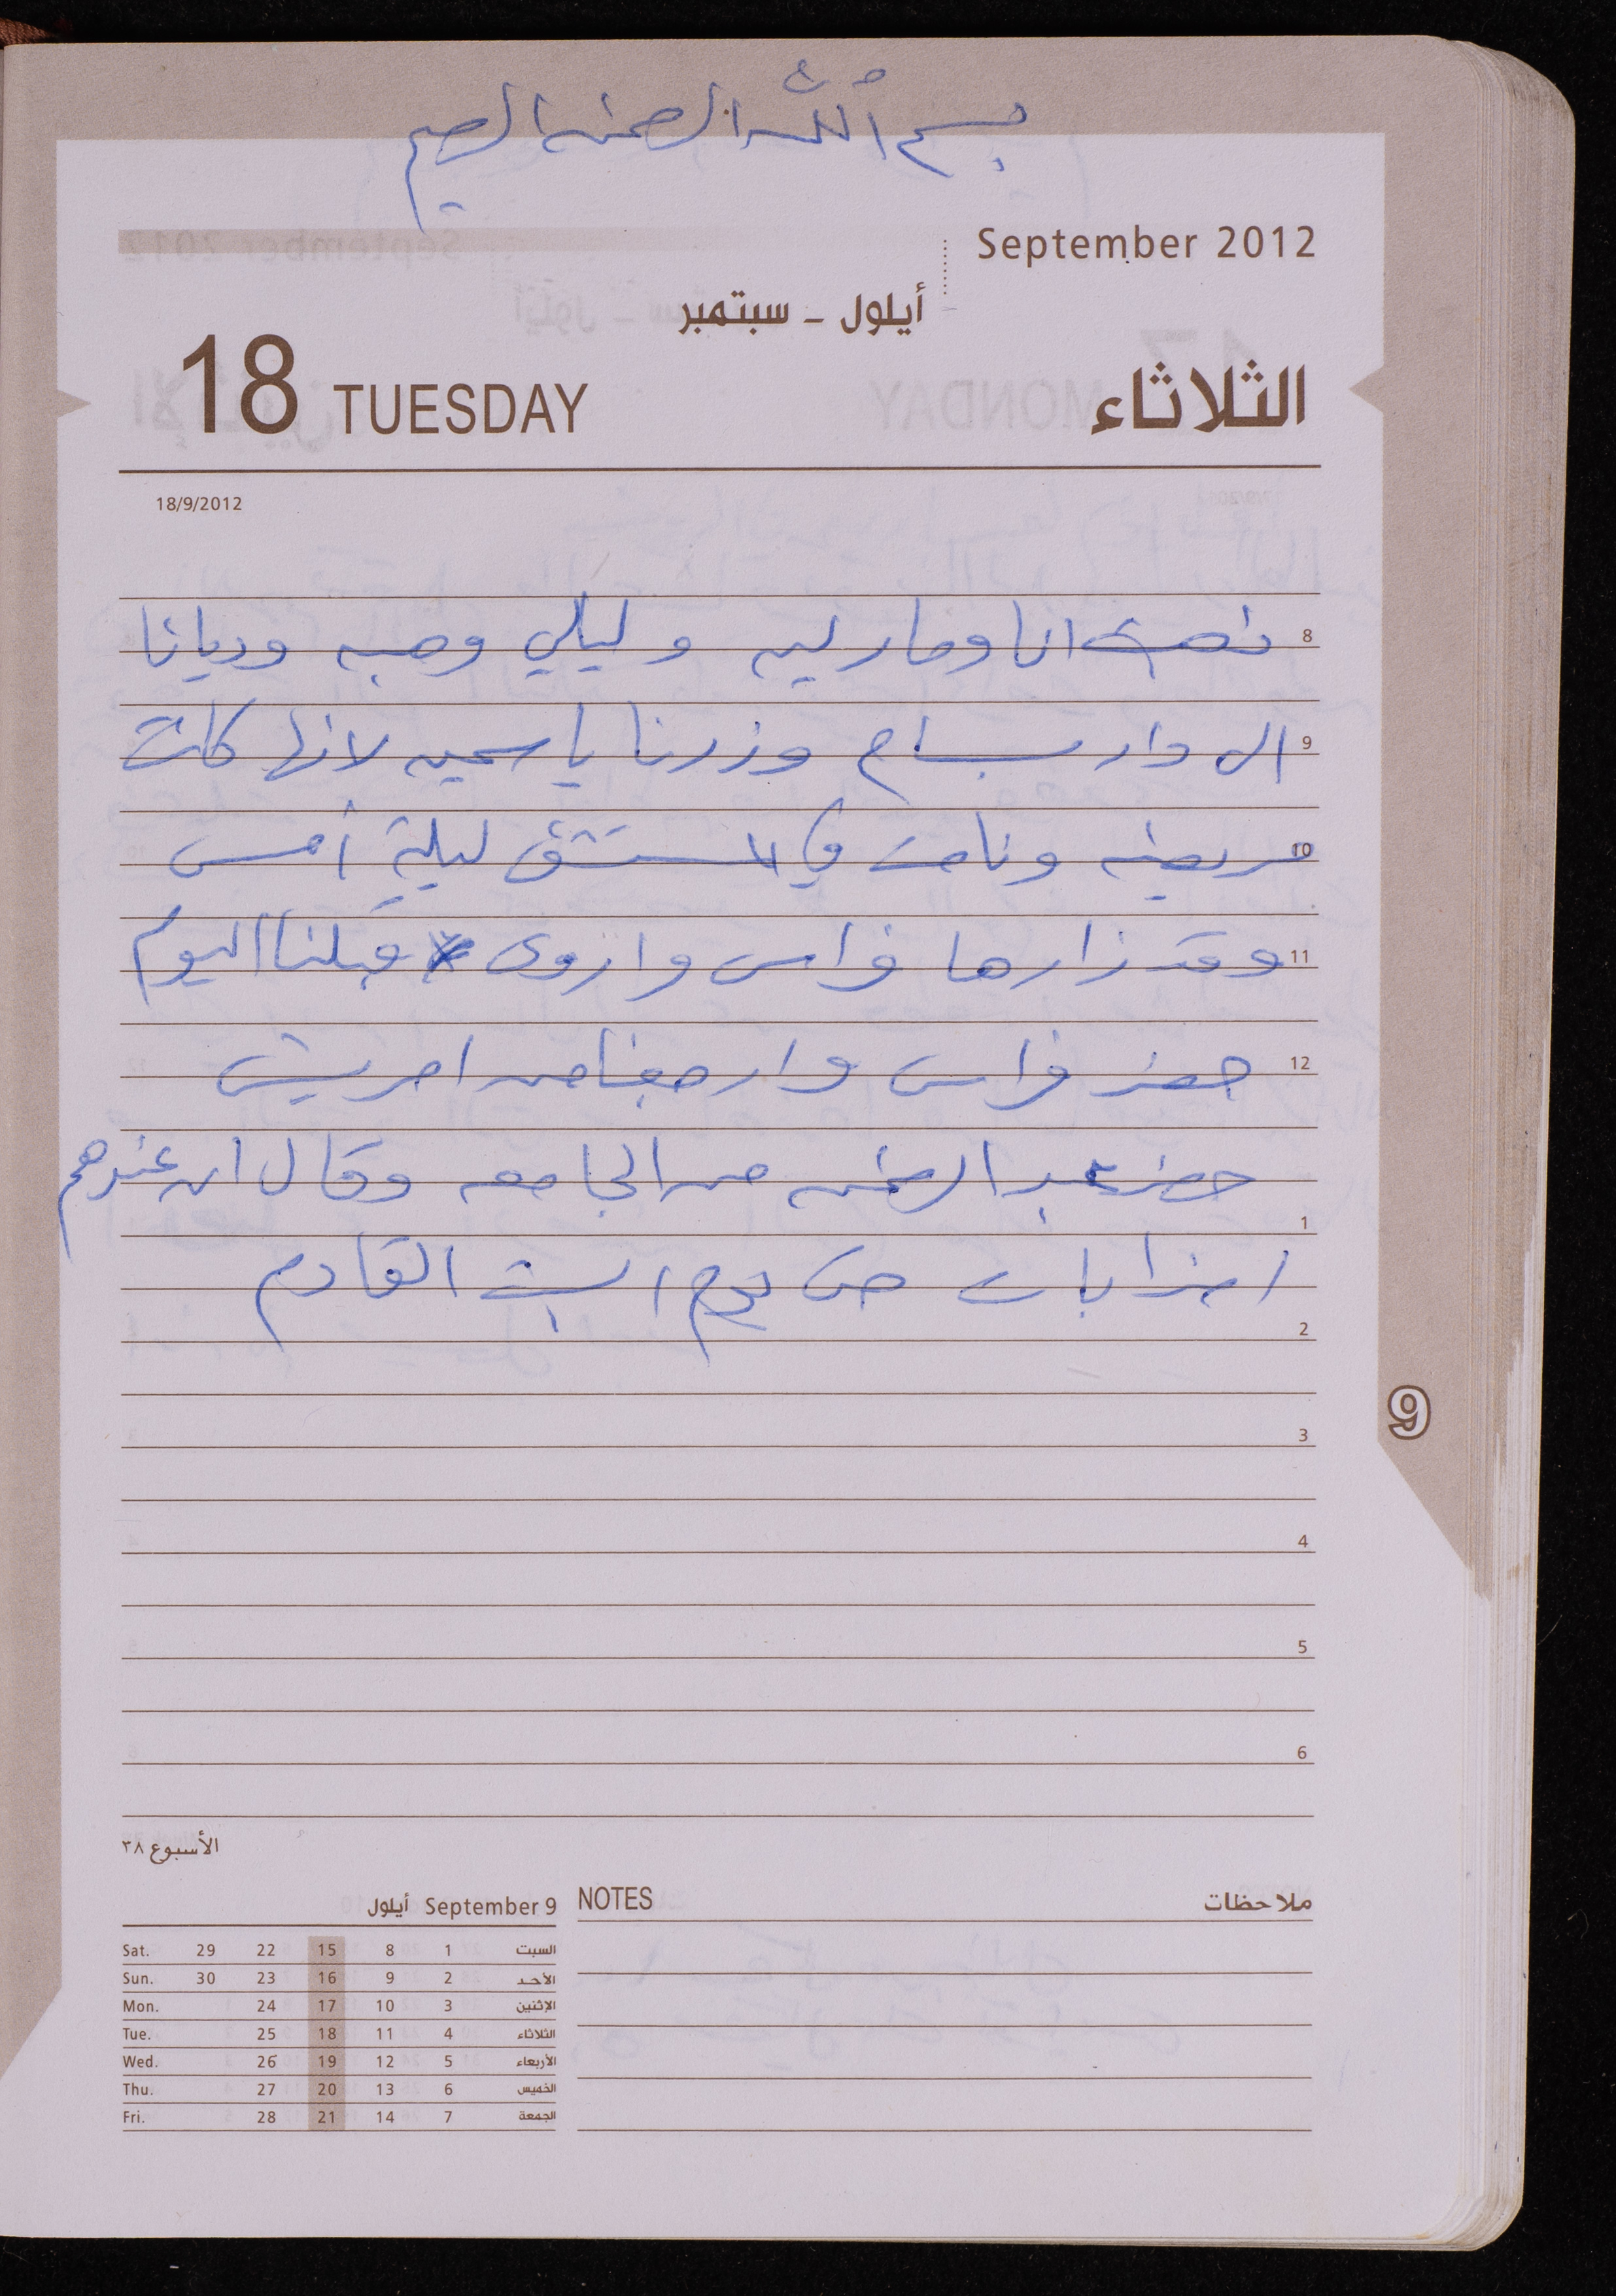 بسم الله الرحمن الرحيم
September 2012
أيلول - سبتمبر
18 TUESDAY الثلاثاء
18/9/2012
8 ذهبت انا ومارلين وليلي وهبه وديانا
9 الى دار بسام وزرنا ياسمين لانها كانت
10 مريضه ونامت في المستشفى ليلة أمس
11 وقد زارها فراس واروى قبلنا اليوم
12 حضر فراس وارجعنا من
حضر عبد الرحمن من الجامعه وقال ان عندهم
1
اضرابات حتى يوم السبت القادم
2
3
9
4
5
6
الأسبوع ٣٨
September 9 أيلول
Sat. 29 22 15 8 1 السبت
Sun. 30 23 16 9 2 الأحد
Mon. 24 17 10 3 الإثنين
Tue. 25 18 11 4 الثلاثاء
Wed. 26 19 12 5 الأربعاء
Thu. 27 20 13 6 الخميس
Fri. 28 21 14 7 الجمعة
NOTES ملاحظات